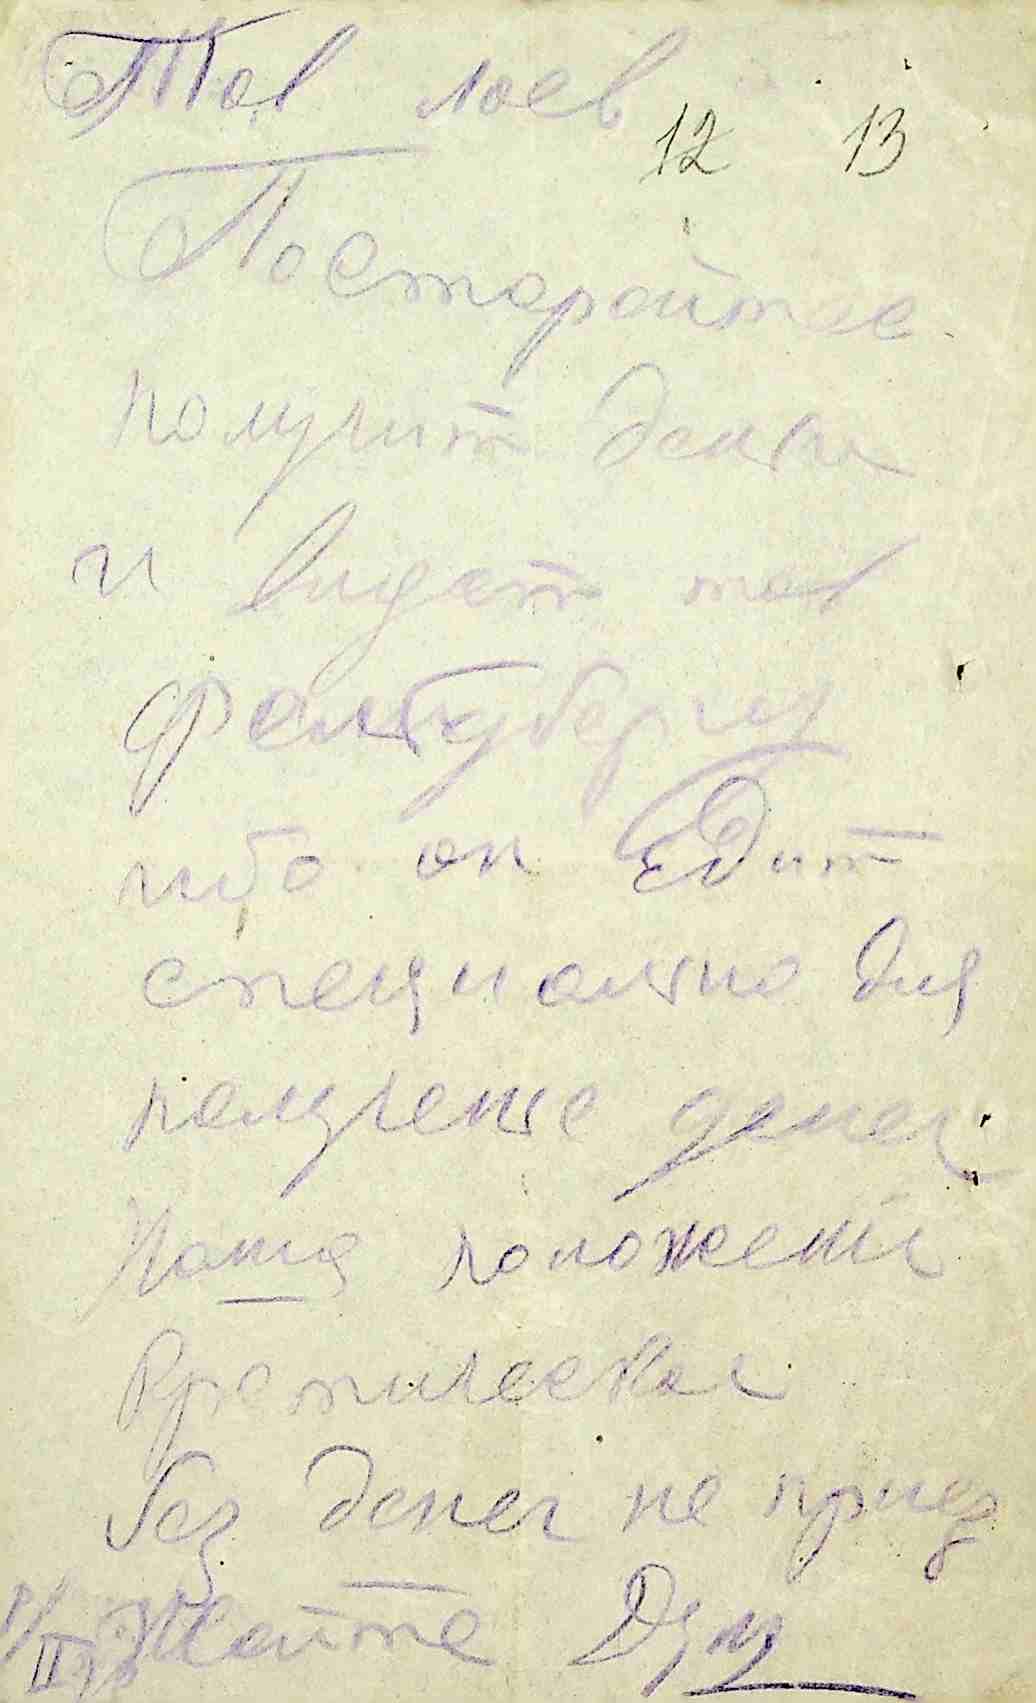 Тов Лоев
12 13
Постарайтес
получит денги
и видат тов
ибо он Едит
специально для
получение денег
Наша положение
критическае
без денег не приез
жайте